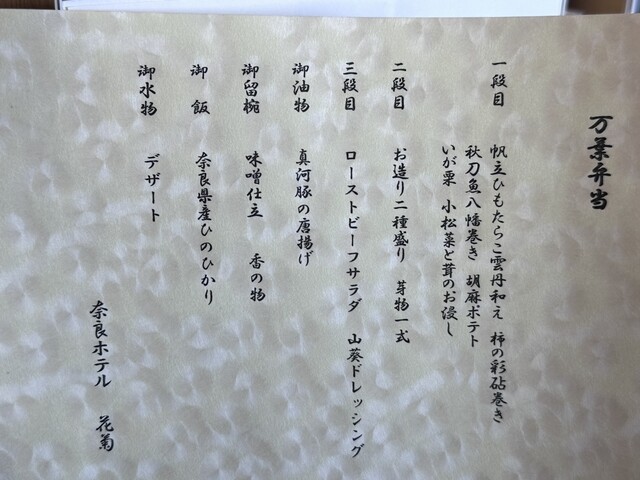 万葉弁当
一段目 帆立ひもたらこ雲丹和え 柿の彩砧巻き
秋刀魚八幡巻き 胡麻ポテト
いが栗 小松菜と茸のお浸し
二段目 お造り二種盛り 芽物一式
三段目 ローストビーフサラダ 山葵ドレッシング
御油物 真河豚の唐揚げ
御留椀 味噌仕立 香の物
御飯 奈良県産ひのひかり
御水物 デザート
奈良ホテル 花菊